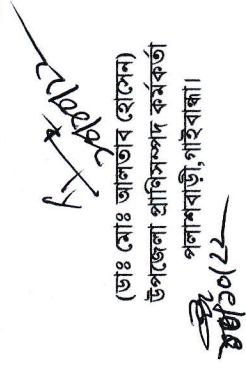 (ডাঃ মোঃ আলতাব হোসেন)
উপজেলা প্রাণিসম্পদ কর্মকর্তা
পলাশবাড়ী,গাইবান্ধা।